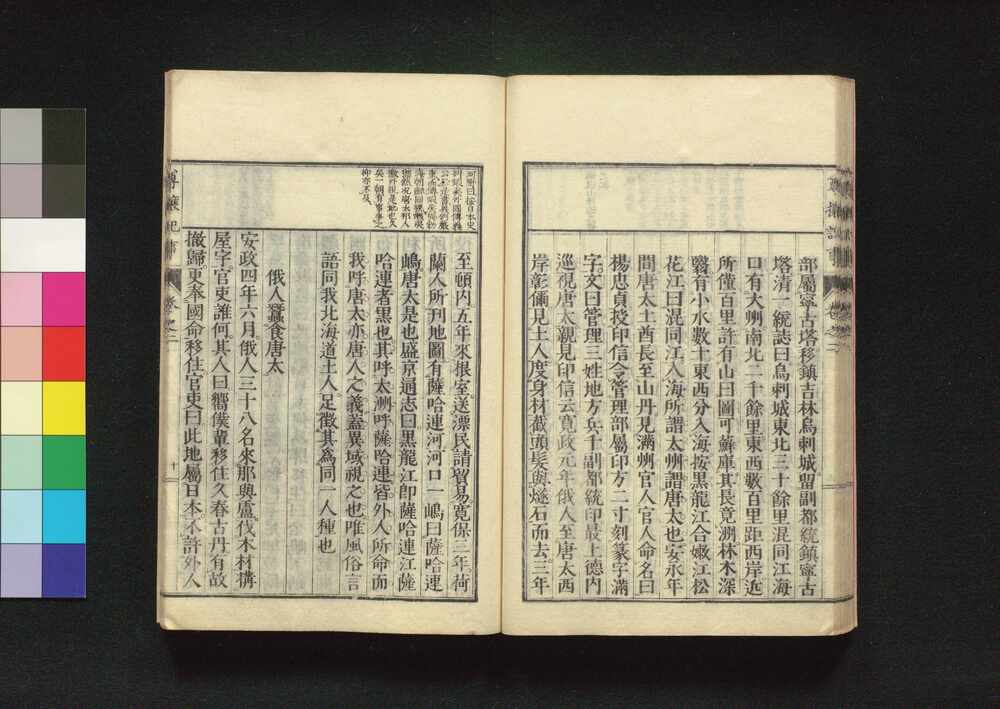 部屬寧古塔移鎮吉林烏剌城留副都統鎮寧古
塔清一統誌曰烏剌城東北三十餘里混同江海
口有大州南北二千餘里東西數百里距西岸近
所僅百里許有山曰圖可蘇庫其長竟洲林木深
翳有小水數十東西分入海按黑龍江合嫩江松
花江曰混同江入海所謂太州謂唐太也安永年
間唐太土酋長至山丹見滿州官人官人命名曰
楊忠貞授印信令管理部屬印方二寸刻篆字滿
字文曰管理三姓地方兵千副都統印最上德内
巡視唐太親見印信云寬政元年俄人至唐太西
岸彰儞見土人度身材截頭髮與燧石而去三年
至頓内五年來根室送漂民請貿易寬保三年荷
蘭人所刊地圖有薩哈連河河口一嶋曰薩哈連
嶋唐太是也盛京通志曰黑龍江即薩哈連江薩
哈連者黑也其呼太洲呼薩哈連皆外人所命而
我呼唐太亦唐人之義蓋異域視之也唯風俗言
語同我北海道土人足徵其爲同一人種也
俄人蠶食唐太
安政四年六月俄人三十八名來那與盧伐木材搆
屋宇官吏誰何其人曰嚮僕輩移住久春古丹有故
撤歸更奉國命移住官吏曰此地屬日本不許外人
卷之二
十